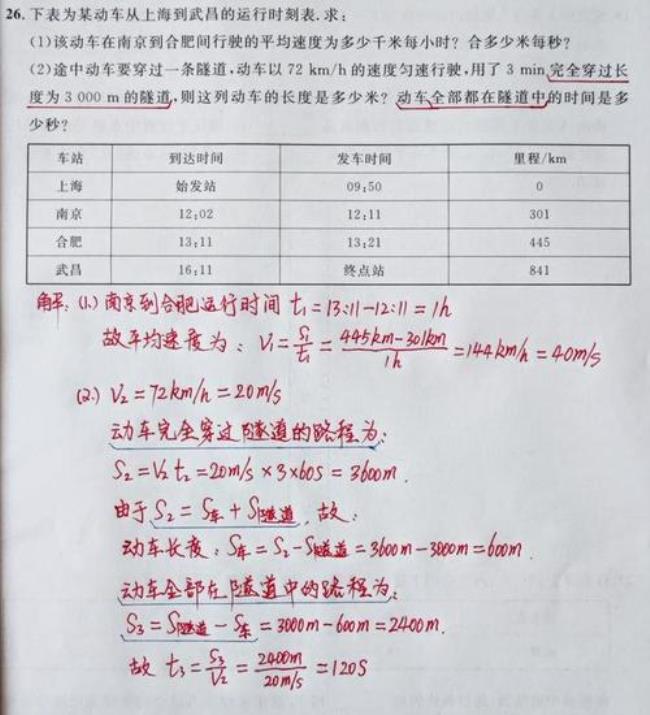 26.下表为某动车从上海到武昌的运行时刻表.求:
(1)该动车在南京到合肥间行驶的平均速度为多少千米每小时?合多少米每秒?
(2)途中动车要穿过一条隧道,动车以72 km/h的速度匀速行驶,用了3 min完全穿过长
度为3 000 m的隧道,则这列动车的长度是多少米?动车全部都在隧道中的时间是多
少秒?
车站 到达时间 发车时间 里程/km
上海 始发站 09:50 0
南京 12:02 12:11 301
合肥 13:11 13:21 445
武昌 16:11 终点站 841
解:(1.)南京到合肥运行时间 t₁=13:11-12:11=1h
故平均速度为:V₁=S₁/t₁=(445km-301km)/1h=144km/h=40m/s
(2.) V₂=72km/h=20m/s
动车完全穿过隧道的路程为:
S₂=V₂t₂=20m/s×3×60s=3600m.
由于S₂=S车+S隧道,故:
动车长度:S车=S₂-S隧道=3600m-3000m=600m.
动车全部在隧道中的路程为:
S₃=S隧道-S车=3000m-600m=2400m.
故 t₃=S₃/V₂=2400m/20m/s=120S